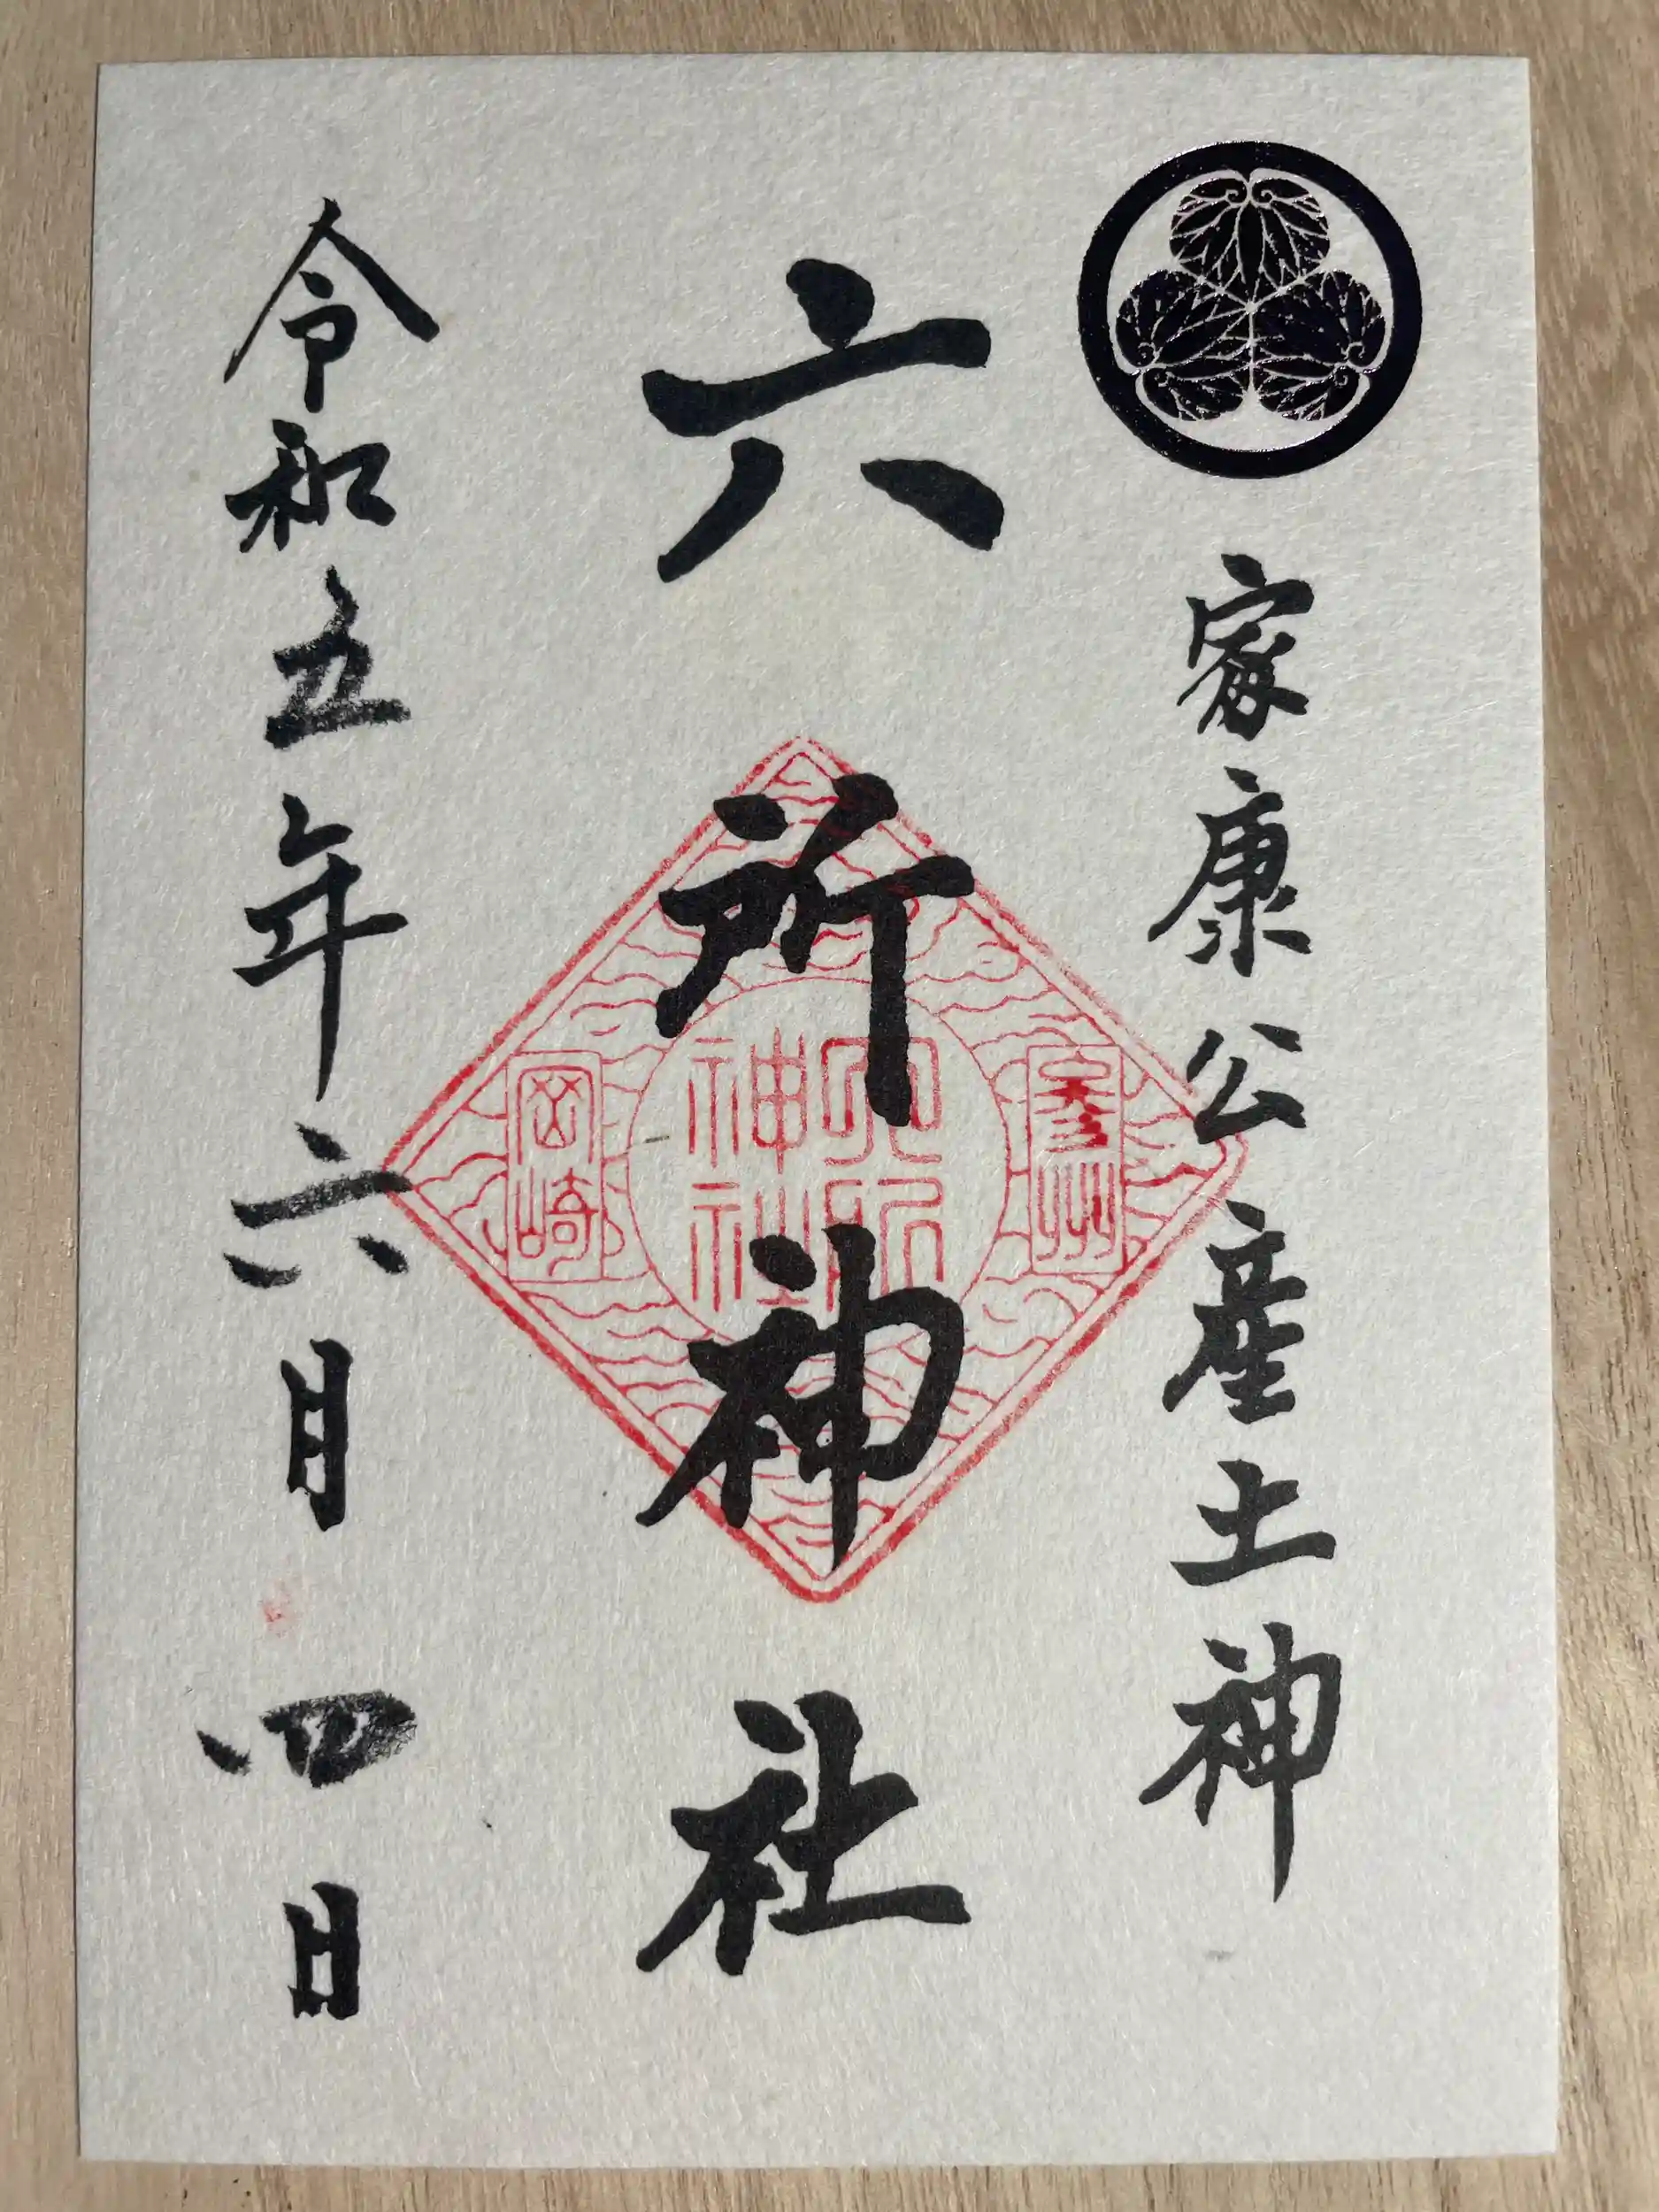 家康公産土神
六所神社
参州
六所
神社
岡崎
令和五年六月四日